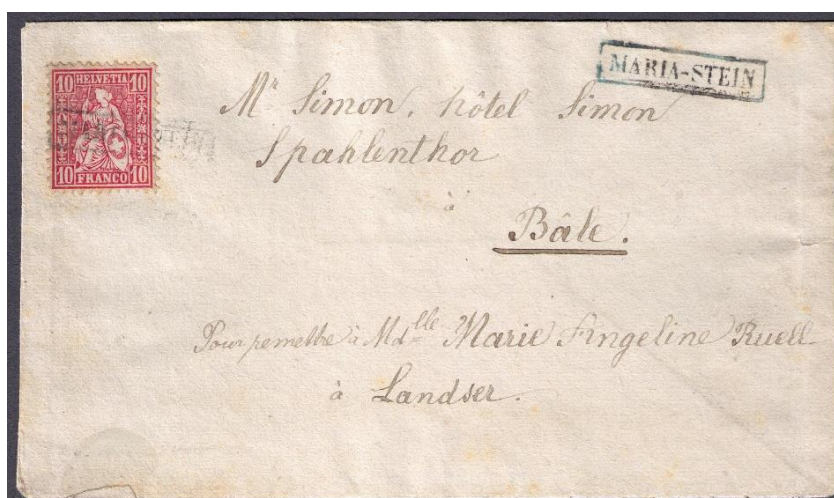 10 HELVETIA 10
10 FRANCO 10
MARIA-STEIN
Mr Simon, hôtel Simon
Spahlenthor
à
Bâle.
Pour remettre à Mdlle Marie Angeline Ruell
à Landser.